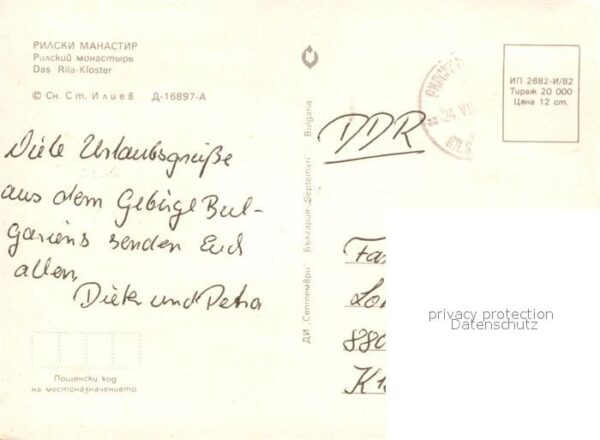 РИЛСКИ МАНАСТИР
Рилский монастырь
Das Rila-Kloster
© Сн. Ст. Илиев Д-16897-А
Viele Urlaubsgrüße
aus dem Gebirge Bul-
gariens senden Euch
allen,
Dieter und Petra
Пощенски код
на местоназначението
ДИ „Септември" България „Septemvri" Bulgaria
ИП 2682-И/82
Тираж 20 000
Цена 12 ст.
24 VI
DDR
Fa
Lo
880
K
privacy protection
Datenschutz